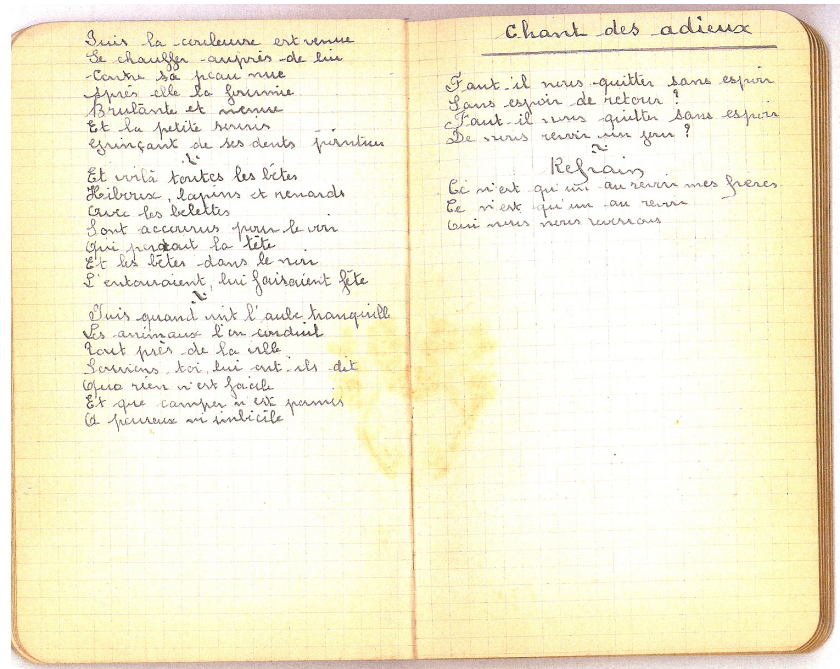 Puis la couleuvre est venue
Se chauffer auprès de lui
Contre sa peau nue
Après elle la fourmie
Brulânte et menue
Et la petite souris
Grinçant de ses dents pointues
Et voilà toutes les bêtes
Hiboux, lapins et renards
Avec les belettes
Sont accourus pour le voir
Qui perdait la tête
Et les bêtes dans le noir
L'entouraient, lui faisaient fête
Puis quand vint l'aube tranquill
Les animaux l'on conduit
Tout près de la ville
Souviens toi, lui ont-ils dit
Que rien n'est facile
Et que camper n'est permis
A peureux ni imbicile
Chant des adieux
Faut-il nous quitter sans espoir
Sans espoir de retour ?
Faut-il nous quitter sans espoir
De nous revoir un jour ?
Refrain
Ce n'est qu'un au revoir mes frères
Ce n'est qu'un au revoir
Oui nous nous reverrons